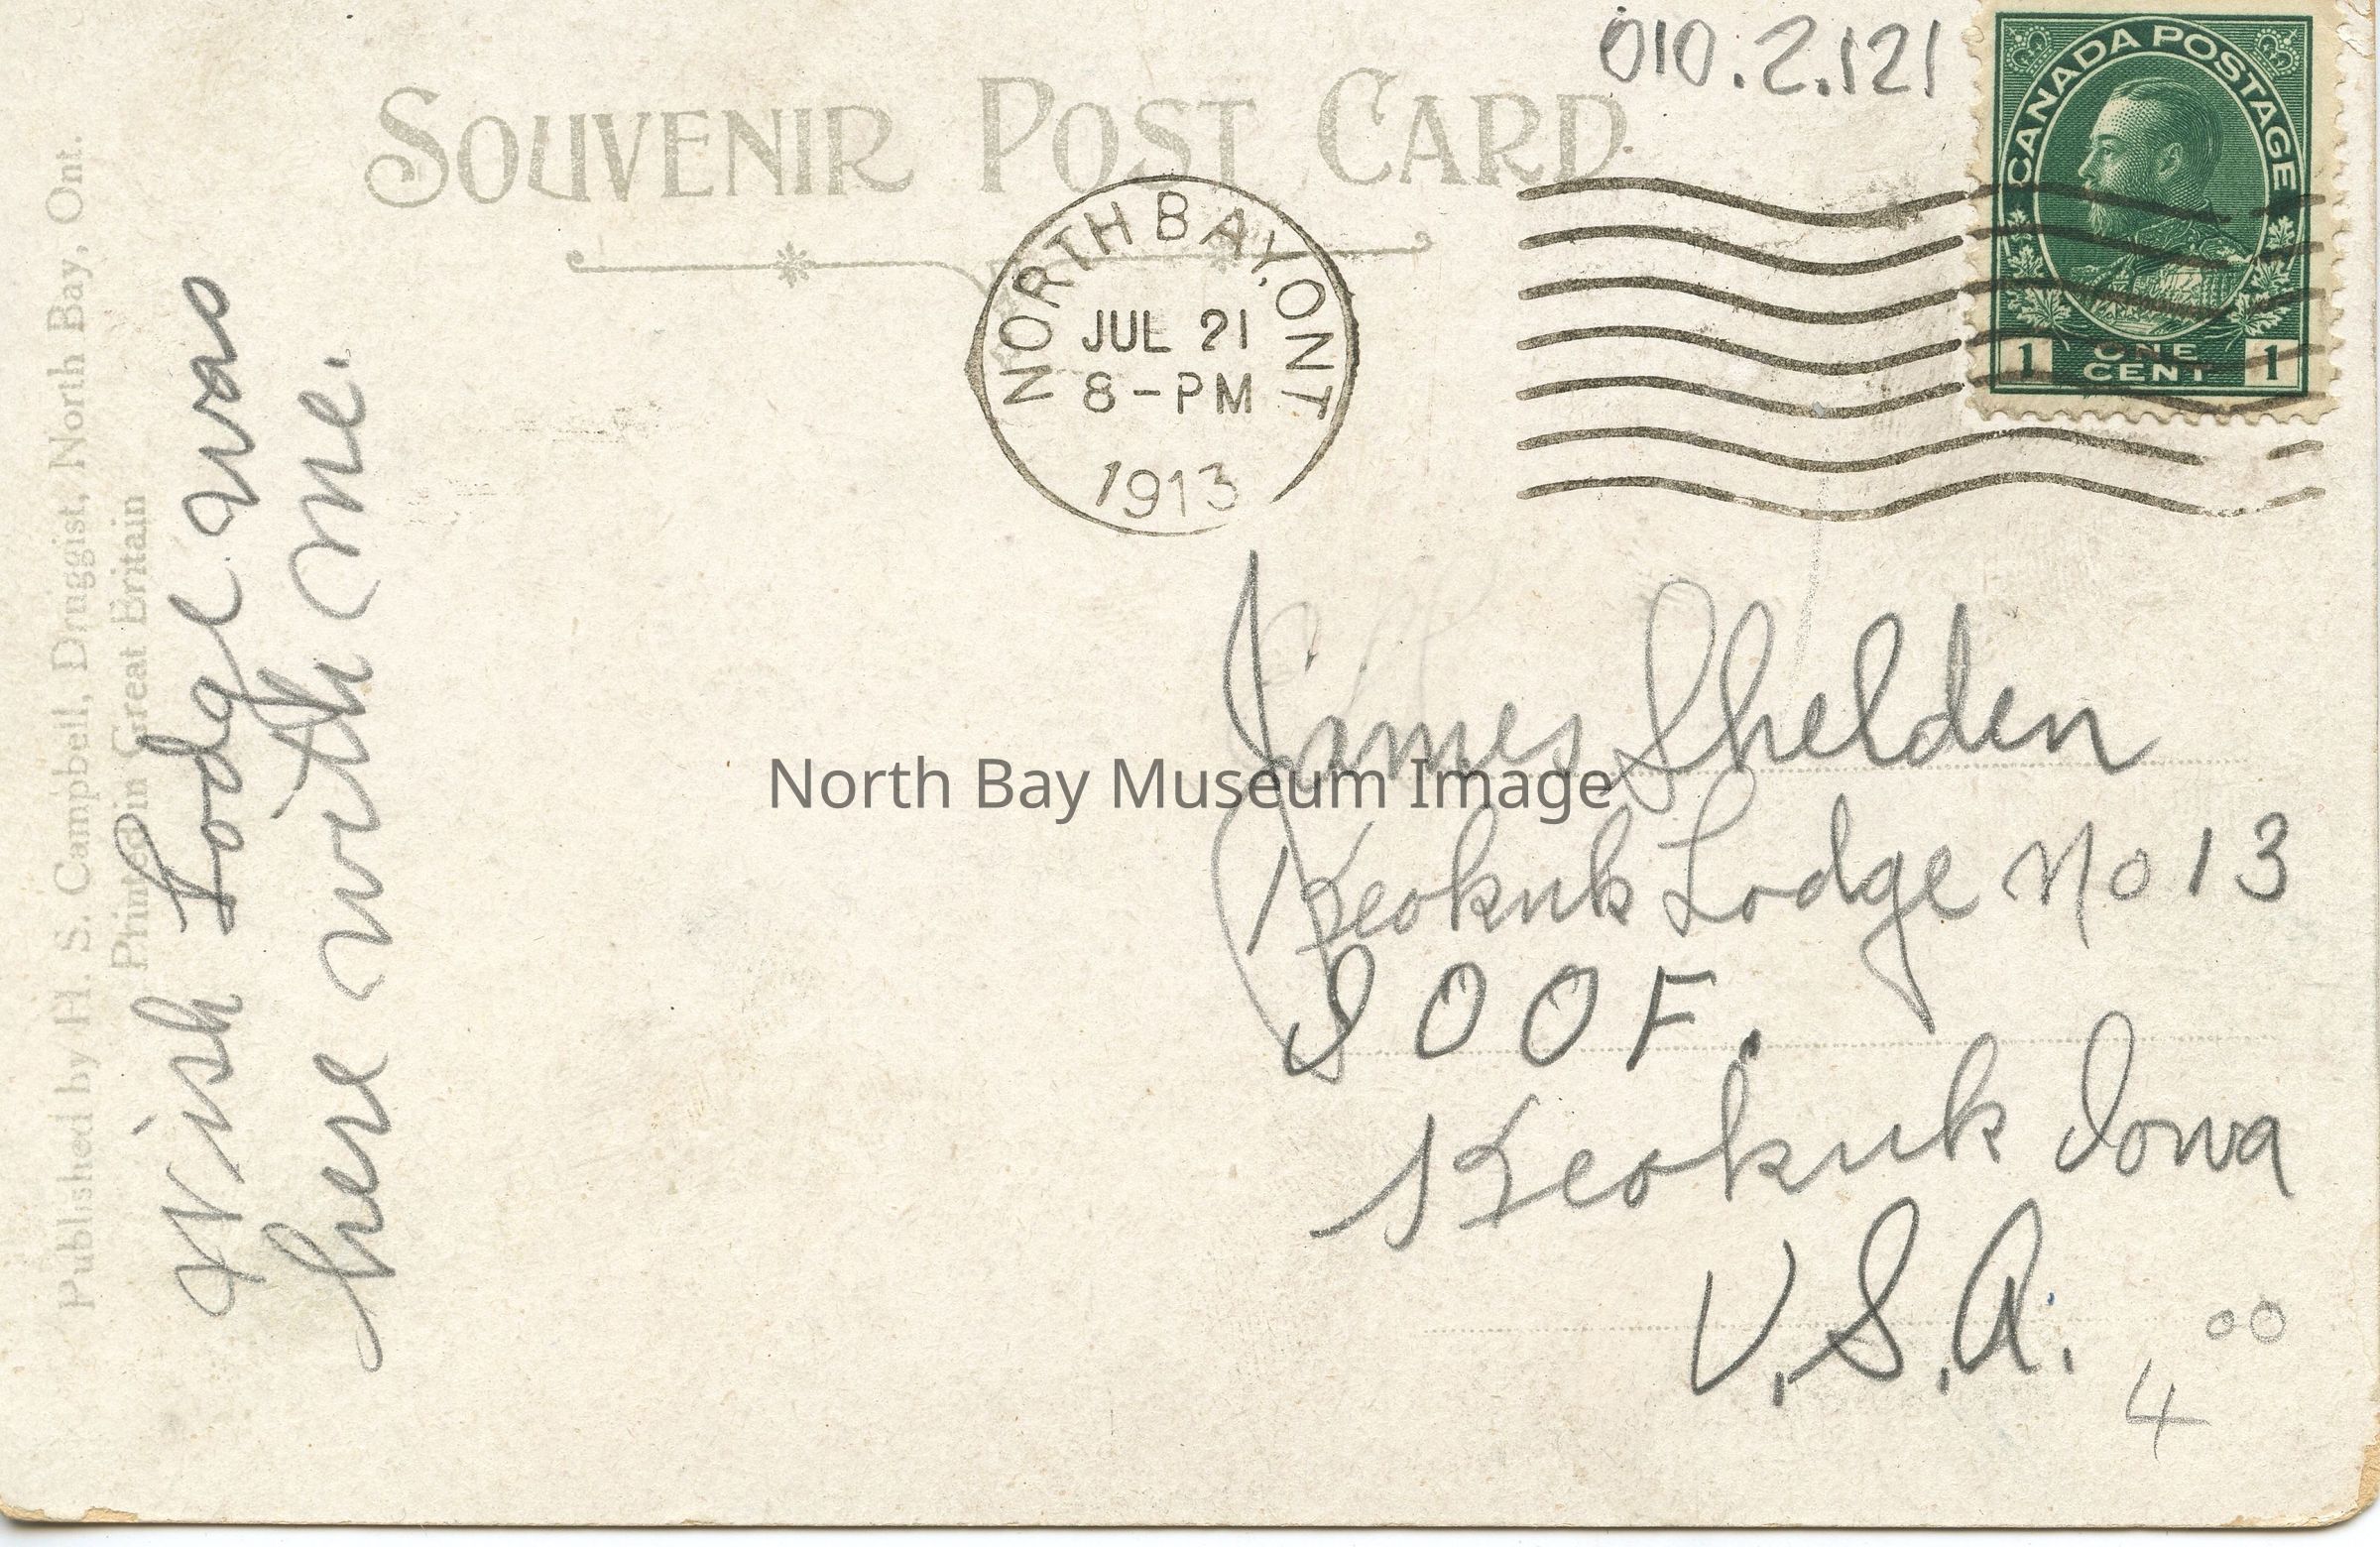 010.2.121
SOUVENIR POST CARD.
CANADA POSTAGE
1 ONE CENT 1
NORTH BAY, ONT
JUL 21
8-PM
1913
Published by H. S. Campbell, Druggist, North Bay, Ont.
Printed in Great Britain
Wish Lodge was
here with me.
James Shelden
Keokuk Lodge No 13
I O O F.
Keokuk Iowa
U.S.A.
4 00
North Bay Museum Image